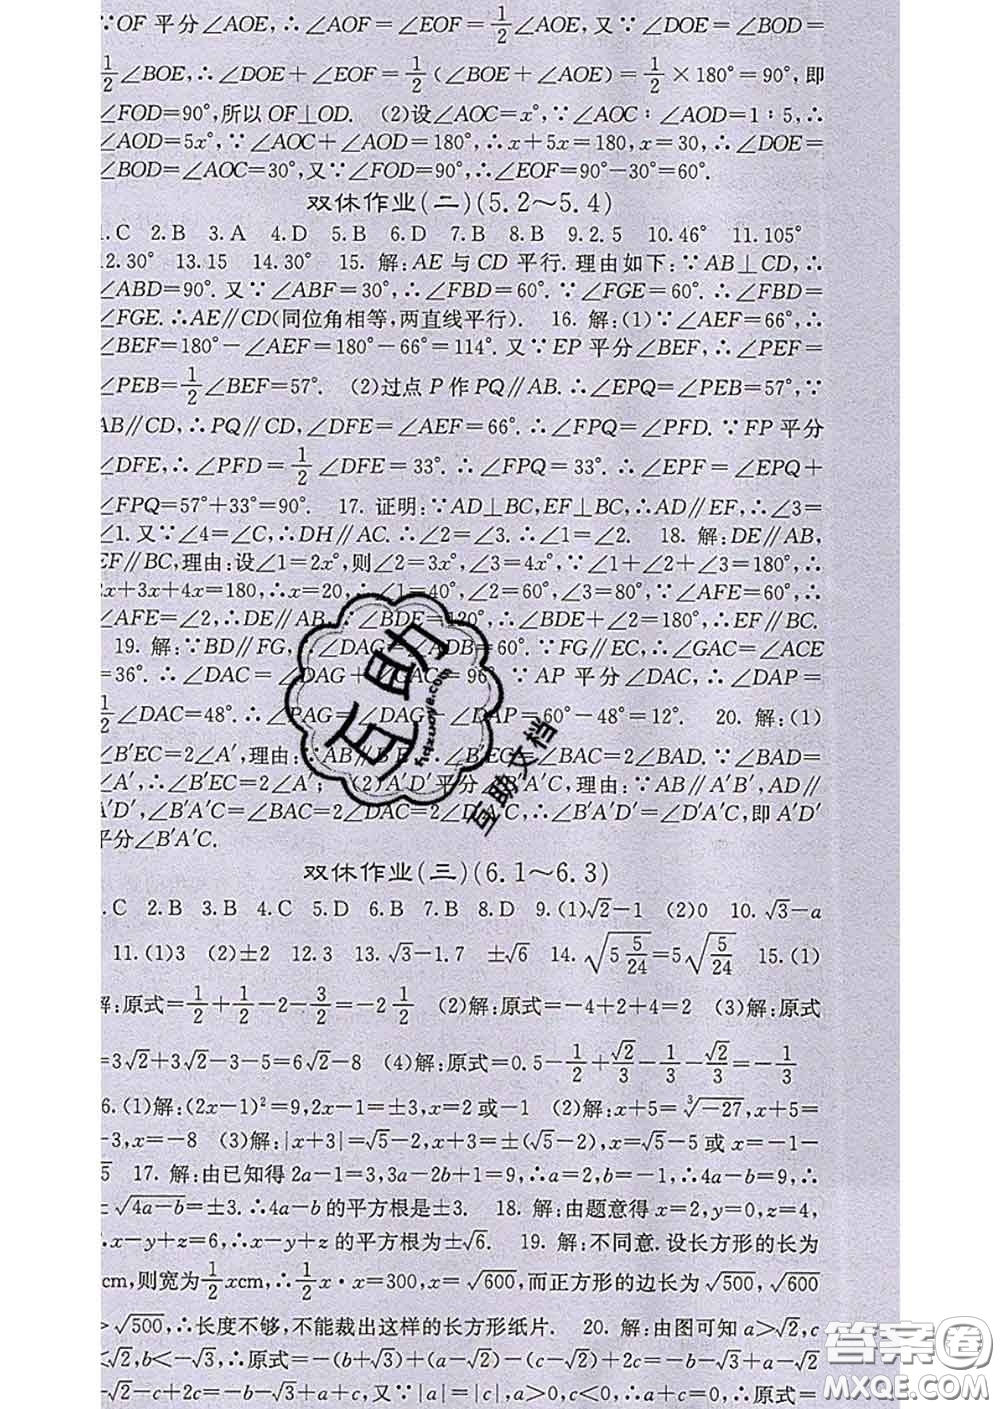 ∵OF 平分∠AOE,∴∠AOF=∠EOF=1/2∠AOE,又∵∠DOE=∠BOD=
1/2∠BOE,∴∠DOE+∠EOF=1/2(∠BOE+∠AOE)=1/2×180°=90°,即
∠FOD=90°,所以 OF⊥OD. (2)设∠AOC=x°,∵∠AOC∶∠AOD=1∶5,∴
∠AOD=5x°,∵∠AOC+∠AOD=180°,∴x+5x=180,x=30,∴∠DOE=
∠BOD=∠AOC=30°,又∵∠FOD=90°,∴∠EOF=90°-30°=60°.
双休作业(二)(5.2~5.4)
1.C 2.B 3.A 4.D 5.B 6.D 7.B 8.B 9.2.5 10.46° 11.105°
12.30° 13.15 14.30° 15. 解:AE 与 CD 平行.理由如下:∵AB⊥CD,∴
∠ABD=90°.又∵∠ABF=30°,∴∠FBD=60°.∵∠FGE=60°.∴∠FBD=
∠FGE.∴AE∥CD(同位角相等,两直线平行). 16. 解:(1)∵∠AEF=66°,∴
∠BEF=180°-∠AEF=180°-66°=114°.又∵EP 平分∠BEF,∴∠PEF=
∠PEB=1/2∠BEF=57°. (2)过点 P 作 PQ∥AB.∴∠EPQ=∠PEB=57°,∵
AB∥CD,∴PQ∥CD,∠DFE=∠AEF=66°.∴∠FPQ=∠PFD.∵FP 平分
∠DFE,∴∠PFD=1/2∠DFE=33°.∴∠FPQ=33°.∴∠EPF=∠EPQ+
∠FPQ=57°+33°=90°. 17. 证明:∵AD⊥BC,EF⊥BC,∴AD∥EF,∴∠3=
∠1.又∵∠4=∠C,∴DH∥AC.∴∠2=∠3.∴∠1=∠2. 18. 解:DE∥AB,
EF∥BC,理由:设∠1=2x°,则∠2=3x°,∠3=4x°,∵∠1+∠2+∠3=180°,∴
2x+3x+4x=180,∴x=20,∴∠1=40°,∠2=60°,∠3=80°,∵∠AFE=60°,∴
∠AFE=∠2,∴DE∥AB,∵∠BDE=120°,∴∠BDE+∠2=180°,∴EF∥BC.
19. 解:∵BD∥FG,∴∠DAG=∠ADB=60°.∵FG∥EC,∴∠GAC=∠ACE
=36°.∴∠DAC=∠DAG+∠GAC=96°.∵AP 平分∠DAC,∴∠DAP=
1/2∠DAC=48°.∴∠PAG=∠DAG-∠DAP=60°-48°=12°. 20. 解:(1)
∠B′EC=2∠A′,理由:∵AB∥B′E ∴∠B′EC=∠BAC=2∠BAD.∵∠BAD=
∠A′,∴∠B′EC=2∠A′; (2)A′D′平分∠B′A′C,理由:∵AB∥A′B′,AD∥
A′D′,∠B′A′C=∠BAC=2∠DAC=2∠D′A′C,∴∠B′A′D′=∠D′A′C,即 A′D′
平分∠B′A′C.
双休作业(三)(6.1~6.3)
1.C 2.B 3.B 4.C 5.D 6.B 7.B 8.D 9.(1)√2-1 (2)0 10.√3-a
11.(1)3 (2)±2 12.3 13.√3-1.7 ±√6 14.√(5 5/24)=5√(5/24) 15.(1)
解:原式=1/2+1/2-2-3/2=-2 1/2 (2)解:原式=-4+2+4=2 (3)解:原式
=3√2+3√2-3-5=6√2-8 (4)解:原式=0.5-1/2+√2/3-1/3-√2/3=-1/3
6.(1)解:(2x-1)²=9,2x-1=±3,x=2 或-1 (2)解:x+5=∛-27,x+5=
-3,x=-8 (3)解:|x+3|=√5-2,x+3=±(√5-2),x=√5-5 或 x=-1-
√5 17. 解:由已知得 2a-1=3,3a-2b+1=9,∴a=2,b=-1,∴4a-b=9,∴
±√(4a-b)=±3.∴4a-b 的平方根是±3. 18. 解:由题意得 x=2,y=0,z=4,
∴x-y+z=6,∴x-y+z 的平方根为±√6. 19. 解:不同意.设长方形的长为
cm,则宽为1/2xcm,∴1/2x·x=300,x=√600,而正方形的边长为√500,√600
>√500,∴长度不够,不能裁出这样的长方形纸片. 20. 解:由图可知 a>√2,c
<√2,b<-√3,∴原式=-(b+√3)+(a-√2)-(c-√2)+2c=-b-√3+a-√2
-√2-c+2c=-b-√3+a+c,又∵|a|=|c|,a>0,c<0,∴a+c=0,∴原式=
互助
hdzuoye.com
互助文档
答案圈
MXQE.COM